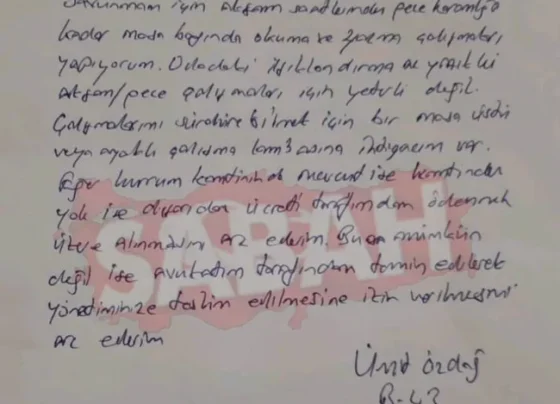 Savunmam için akşam saatlerinden gece karanlığa
kadar masa başında okuma ve yazma çalışmaları
yapıyorum. Odadaki ışıklandırma ne yazık ki
akşam/gece çalışmaları için yeterli değil.
Çalışmalarımı sürdürebilmek için bir masa üstü
veya ayaklı çalışma lambasına ihtiyacım var.
Eğer kurum kantininde mevcut ise kantinden
yok ise dışarıdan ücreti tarafımdan ödenmek
üzere alınmasını arz ederim. Bu mümkün
değil ise avukatım tarafından temin edilerek
yönetiminize teslim edilmesine izin verilmesini
arz ederim
Ümit Özdağ
B-43
SABAH